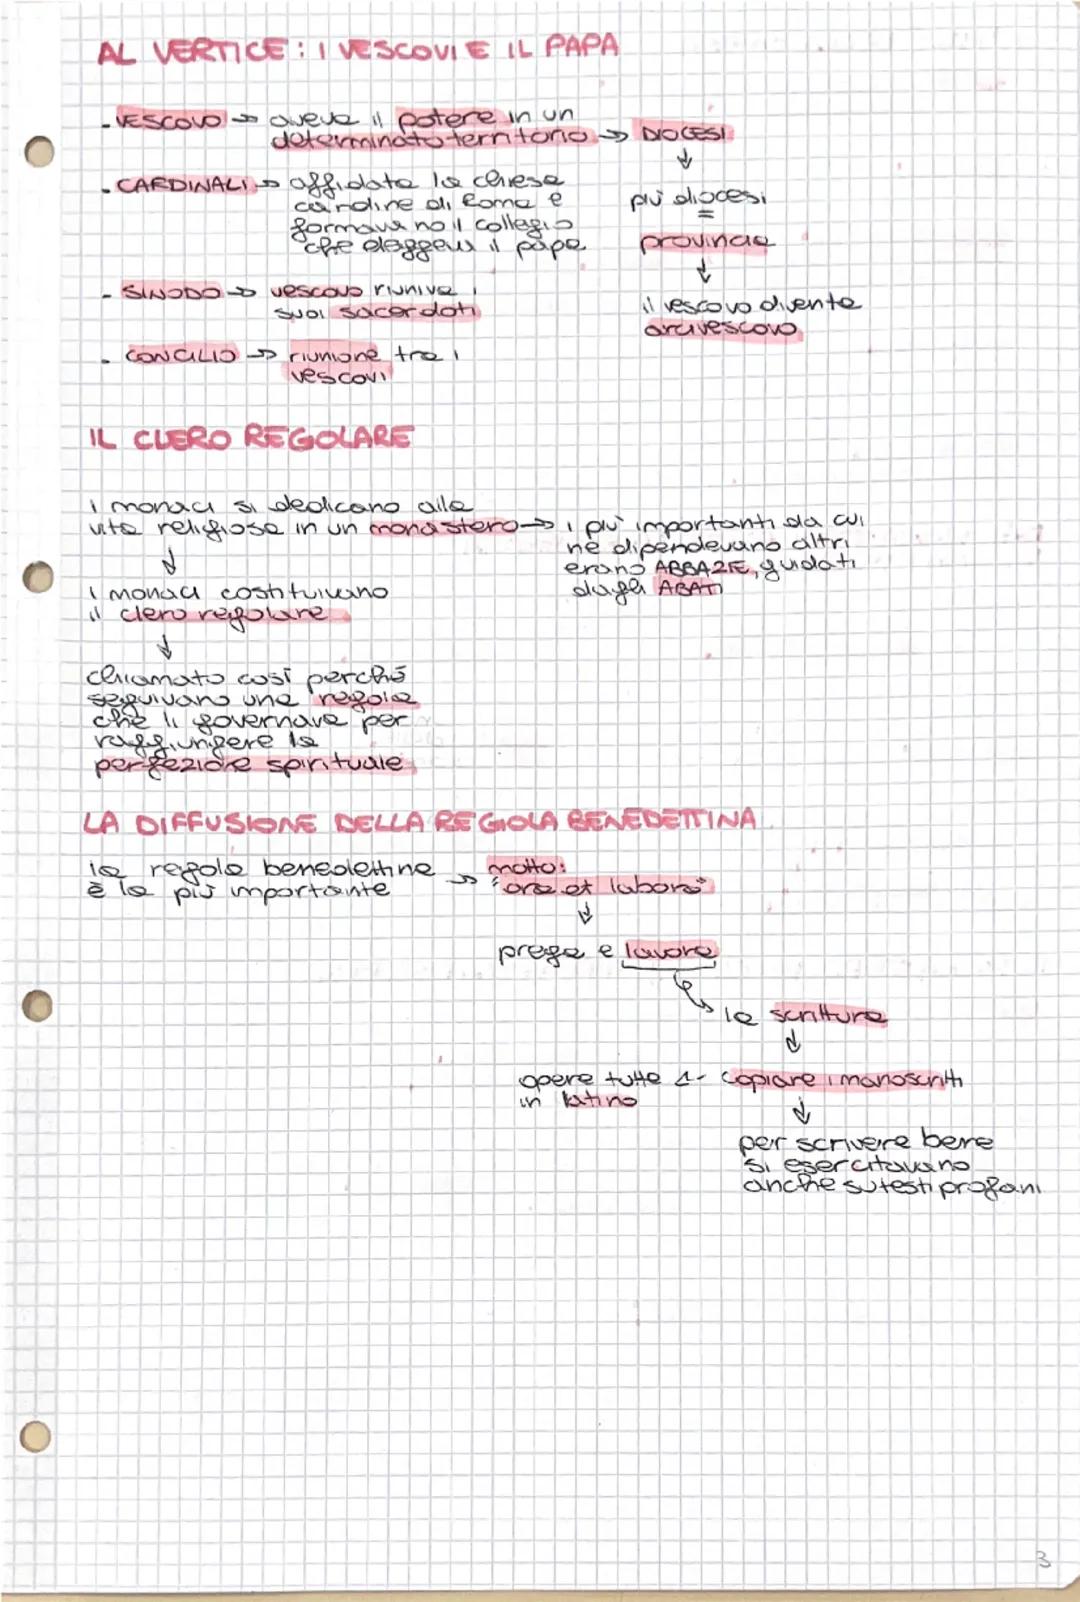 AL VERTICE: I VESCOVI E IL PAPA
- VESCOVO → aveva il potere in un
determinato territorio → DIOCESI
↓
più diocesi
=
provincia
↓
il vescovo diventa
arcivescovo
- CARDINALI → affidata la chiesa
cardine di Roma e
formavano il collegio
che eleggeva il papa
- SINODO → vescovo riuniva i
suoi sacerdoti
- CONCILIO → riunione tra i
vescovi
IL CLERO REGOLARE
i monaci si dedicano alla
vita religiosa in un monastero → i più importanti da cui
ne dipendevano altri
erano ABBAZIE, guidati
dagli ABATI
↓
i monaci costituivano
il clero regolare
↓
chiamato così perché
seguivano una regola
che li governava per
raggiungere la
perfezione spirituale
LA DIFFUSIONE DELLA REGOLA BENEDETTINA
la regola benedettina
è la più importante → motto:
"ora et labora"
↓
prega e lavora
↳ la scrittura
↓
opere tutte ← copiare i manoscritti
in latino
↓
per scrivere bene
si esercitavano
anche su testi profani
3